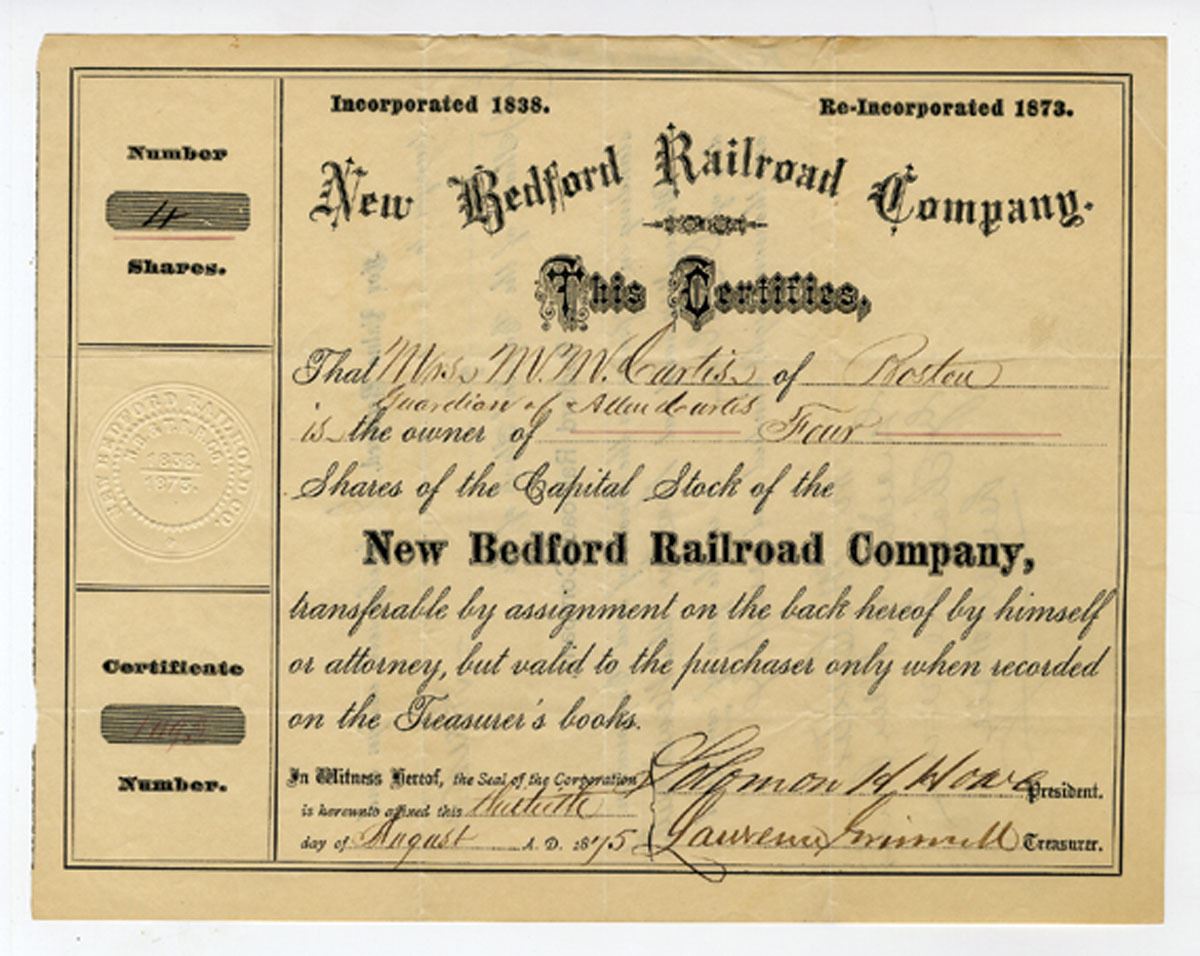 Incorporated 1838.
Re-Incorporated 1873.
New Bedford Railroad Company.
This Certifies,
Number
4
Shares.
That Mrs. M. M. Curtis of Boston
Guardian of Allen Curtis
is the owner of Four
Shares of the Capital Stock of the
New Bedford Railroad Company,
transferable by assignment on the back hereof by himself
or attorney, but valid to the purchaser only when recorded
on the Treasurer's books.
NEW BEDFORD RAILROAD CO.
1838.
1873.
Certificate
Number.
In Witness Hereof, the Seal of the Corporation
is hereunto affixed this
day of August A. D. 1875
Solomon H Howe President.
Lawrence Grinnell Treasurer.